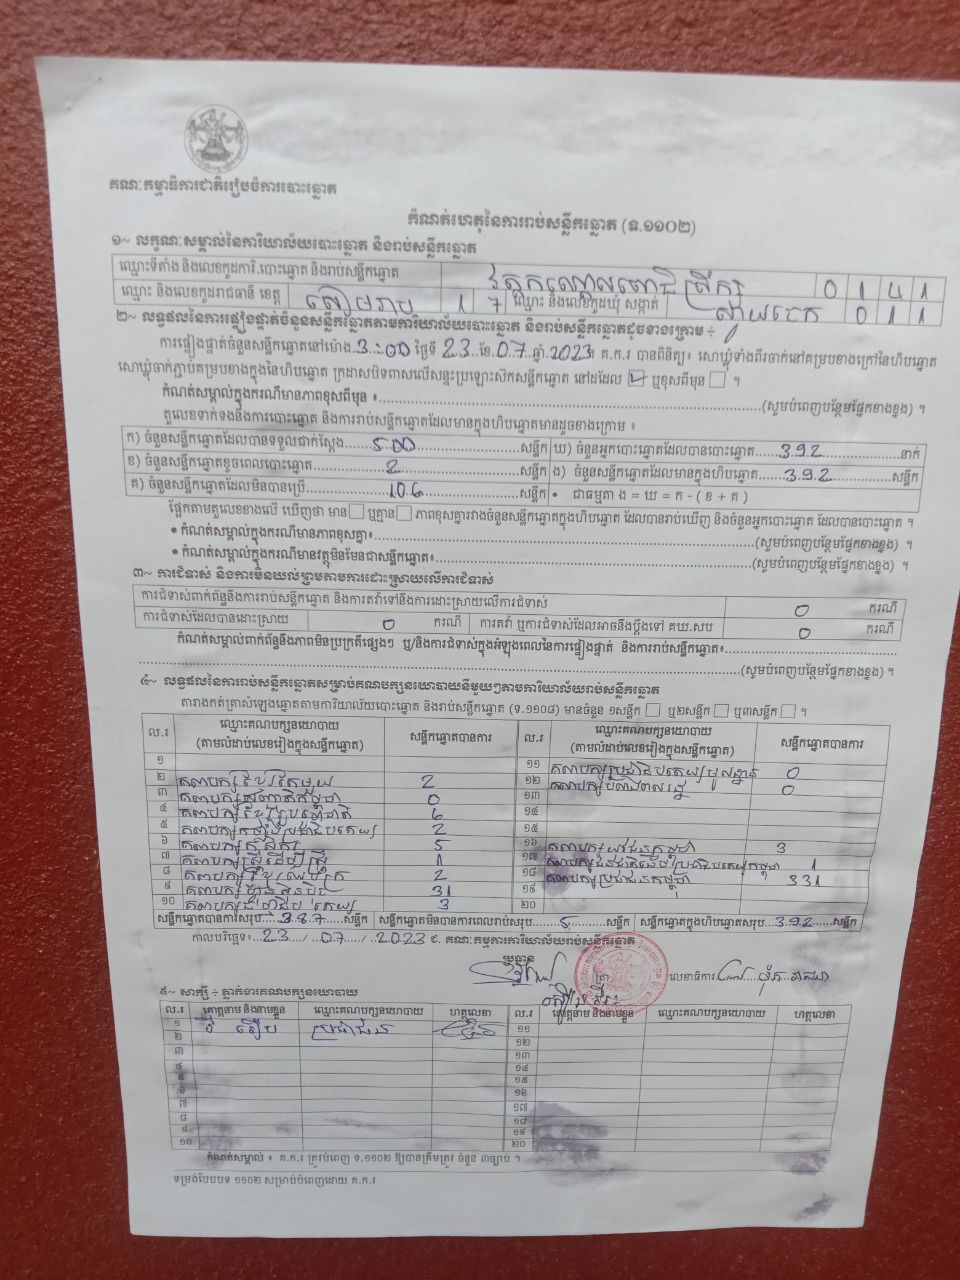 គណៈកម្មាធិការជាតិរៀបចំការបោះឆ្នោត
កំណត់ហេតុនៃការរាប់សន្លឹកឆ្នោត (ទ.១១០២)
១~ លក្ខណៈសម្គាល់នៃការិយាល័យបោះឆ្នោត និងរាប់សន្លឹកឆ្នោត
ឈ្មោះទីតាំង និងលេខកូដការិ.បោះឆ្នោត និងរាប់សន្លឹកឆ្នោត 0 1 4 1
ឈ្មោះ និងលេខកូដរាជធានី ខេត្ត សៀមរាប 1 7 ឈ្មោះ និងលេខកូដឃុំ សង្កាត់ ស្វាយចេក 0 1 1
២~ លទ្ធផលនៃការផ្ទៀងផ្ទាត់ចំនួនសន្លឹកឆ្នោតតាមការិយាល័យបោះឆ្នោត និងរាប់សន្លឹកឆ្នោតដូចខាងក្រោម ÷
ការផ្ទៀងផ្ទាត់ចំនួនសន្លឹកឆ្នោតនៅម៉ោង 3:00 ថ្ងៃទី 23 ខែ 07 ឆ្នាំ 2023។ គ.ក.រ បានពិនិត្យ៖ សោឃ្លុំទាំងពីរចាក់នៅគម្របខាងក្រៅនៃហិបឆ្នោត
សោឃ្លុំចាក់ភ្ជាប់គម្របខាងក្នុងនៃហិបឆ្នោត ក្រដាសបិទពាសលើសន្ទះប្រឡោះស៊កសន្លឹកឆ្នោត នៅដដែល ☑ ឬខុសពីមុន ☐ ។
កំណត់សម្គាល់ក្នុងករណីមានភាពខុសពីមុន ៖ (សូមបំពេញបន្ថែមផ្នែកខាងខ្នង) ។
តួលេខទាក់ទងនឹងការបោះឆ្នោត និងការរាប់សន្លឹកឆ្នោតដែលមានក្នុងហិបឆ្នោតមានដូចខាងក្រោម ៖
ក) ចំនួនសន្លឹកឆ្នោតដែលបានទទួលជាក់ស្ដែង 500 សន្លឹក ឃ) ចំនួនអ្នកបោះឆ្នោតដែលបានបោះឆ្នោត 392 នាក់
ខ) ចំនួនសន្លឹកឆ្នោតខូចពេលបោះឆ្នោត 2 សន្លឹក ង) ចំនួនសន្លឹកឆ្នោតដែលមានក្នុងហិបឆ្នោត 392 សន្លឹក
គ) ចំនួនសន្លឹកឆ្នោតដែលមិនបានប្រើ 106 សន្លឹក • ជាធម្មតា ង = ឃ = ក - ( ខ + គ )
ផ្អែកតាមតួលេខខាងលើ ឃើញថា មាន ☐ ឬគ្មាន ☐ ភាពខុសគ្នារវាងចំនួនសន្លឹកឆ្នោតក្នុងហិបឆ្នោត ដែលបានរាប់ឃើញ និងចំនួនអ្នកបោះឆ្នោត ដែលបានបោះឆ្នោត ។
• កំណត់សម្គាល់ក្នុងករណីមានភាពខុសគ្នា៖ (សូមបំពេញបន្ថែមផ្នែកខាងខ្នង) ។
• កំណត់សម្គាល់ក្នុងករណីមានវត្ថុមិនមែនជាសន្លឹកឆ្នោត៖ (សូមបំពេញបន្ថែមផ្នែកខាងខ្នង) ។
៣~ ការជំទាស់ និងការមិនយល់ព្រមតាមការដោះស្រាយលើការជំទាស់
ការជំទាស់ពាក់ព័ន្ធនឹងការរាប់សន្លឹកឆ្នោត និងការតវ៉ាទៅនឹងការដោះស្រាយលើការជំទាស់ 0 ករណី
ការជំទាស់ដែលបានដោះស្រាយ 0 ករណី ការតវ៉ា ឬការជំទាស់ដែលអាចនឹងប្ដឹងទៅ គឃ.សប 0 ករណី
កំណត់សម្គាល់ពាក់ព័ន្ធនឹងភាពមិនប្រក្រតីផ្សេងៗ ឬ/និងការជំទាស់ក្នុងអំឡុងពេលនៃការផ្ទៀងផ្ទាត់ និងការរាប់សន្លឹកឆ្នោត៖
(សូមបំពេញបន្ថែមផ្នែកខាងខ្នង) ។
៤~ លទ្ធផលនៃការរាប់សន្លឹកឆ្នោតសម្រាប់គណបក្សនយោបាយនីមួយៗតាមការិយាល័យរាប់សន្លឹកឆ្នោត
តារាងកត់ត្រាសំឡេងឆ្នោតតាមការិយាល័យបោះឆ្នោត និងរាប់សន្លឹកឆ្នោត (ទ.១១០៨) មានចំនួន ១សន្លឹក ☐ ឬ២សន្លឹក ☐ ឬ៣សន្លឹក ☐ ។
ល.រ ឈ្មោះគណបក្សនយោបាយ (តាមលំដាប់លេខរៀងក្នុងសន្លឹកឆ្នោត) សន្លឹកឆ្នោតបានការ ល.រ ឈ្មោះគណបក្សនយោបាយ (តាមលំដាប់លេខរៀងក្នុងសន្លឹកឆ្នោត) សន្លឹកឆ្នោតបានការ
១ ១១ គណបក្សប្រជាធិបតេយ្យមូលដ្ឋាន 0
២ គណបក្សខ្មែរតែមួយ 2 ១២ គណបក្ស 0
៣ គណបក្ស 0 ១៣
៤ គណបក្សខ្មែររួបរួមជាតិ 6 ១៤
៥ គណបក្សកម្លាំងប្រជាធិបតេយ្យ 2 ១៥
៦ គណបក្សកសិករ 5 ១៦ គណបក្សយុវជនកម្ពុជា 3
៧ គណបក្សស្ត្រីដើម្បីស្ត្រី 1 ១៧ គណបក្សជនជាតិដើមប្រជាធិបតេយ្យកម្ពុជា 1
៨ គណបក្ស 2 ១៨ គណបក្សប្រជាជនកម្ពុជា 331
៩ គណបក្សហ្វ៊ុនស៊ិនប៉ិច 31 ១៩
១០ គណបក្ស 3 ២០
សន្លឹកឆ្នោតបានការសរុប 387 សន្លឹក សន្លឹកឆ្នោតមិនបានការពេលរាប់សរុប 5 សន្លឹក សន្លឹកឆ្នោតក្នុងហិបឆ្នោតសរុប 392 សន្លឹក
កាលបរិច្ឆេទ៖ 23 / 07 / 2023 ៩. គណៈកម្មការការិយាល័យរាប់សន្លឹកឆ្នោត
ប្រធាន ត្រា លេខាធិការ
៥~ សាក្សី ÷ ភ្នាក់ងារគណបក្សនយោបាយ
ល.រ គោត្តនាម និងនាមខ្លួន ឈ្មោះគណបក្សនយោបាយ ហត្ថលេខា ល.រ គោត្តនាម និងនាមខ្លួន ឈ្មោះគណបក្សនយោបាយ ហត្ថលេខា
១ ប្រជាជន ១១
២ ១២
៣ ១៣
៤ ១៤
៥ ១៥
៦ ១៦
៧ ១៧
៨ ១៨
៩ ១៩
១០ ២០
កំណត់សម្គាល់ ៖ គ.ក.រ ត្រូវបំពេញ ទ.១១០២ ឱ្យបានត្រឹមត្រូវ ចំនួន ៣ច្បាប់ ។
ទម្រង់បែបបទ ១១០២ សម្រាប់បំពេញដោយ គ.ក.រ